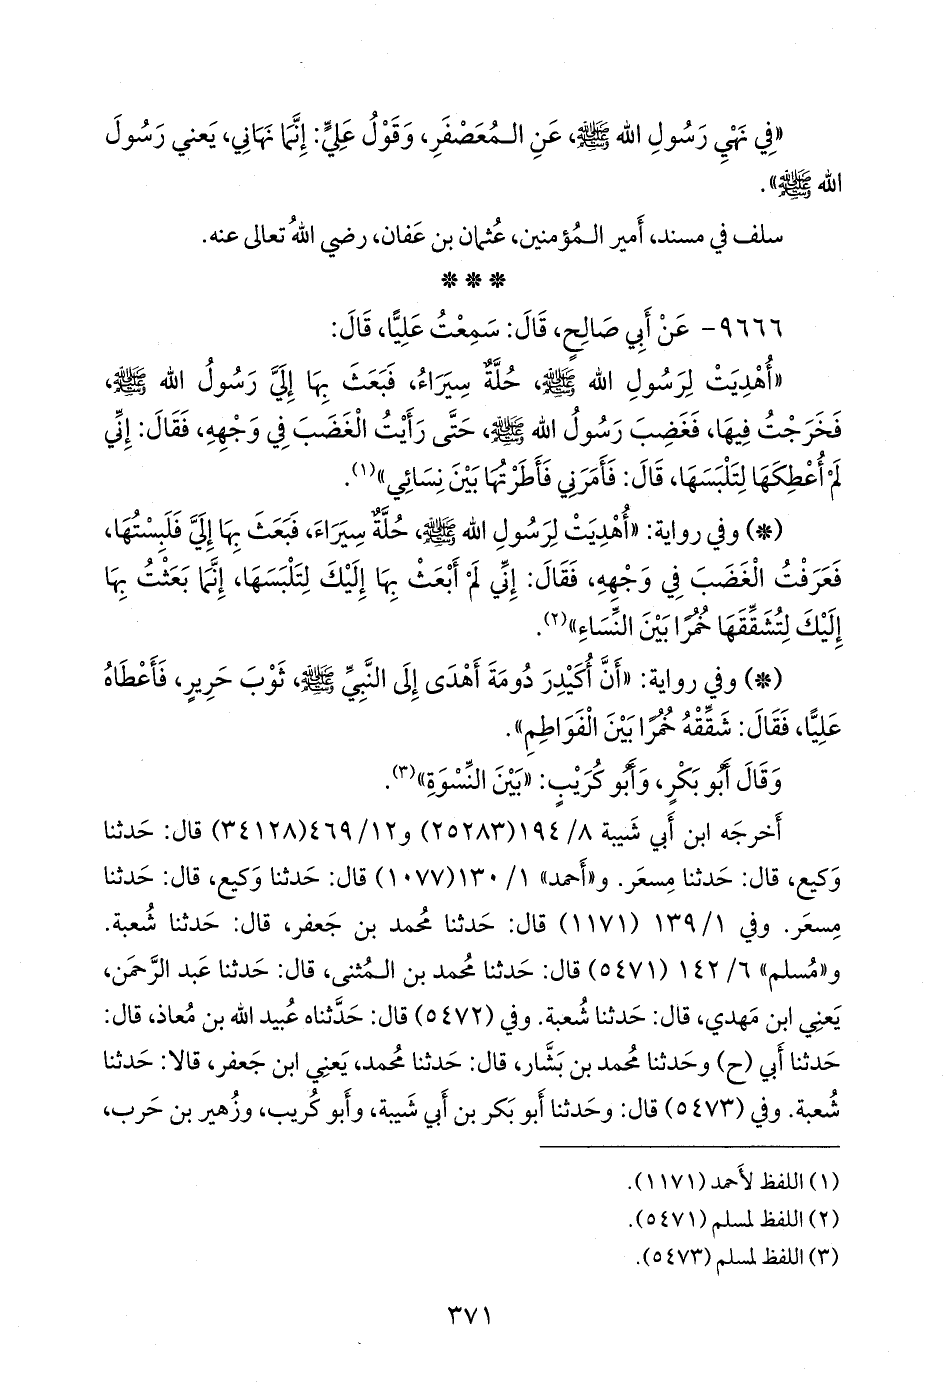 «فِي نَهْيِ رَسُولِ الله ﷺ، عَنِ الـمُعَصْفَرِ، وَقَوْلُ عَلِيٍّ: إِنَّمَا نَهَانِي، يَعني رَسُولَ
الله ﷺ».
سلف في مسند، أَمير الـمُؤمنين، عُثمان بن عَفان، رضي اللهُ تعالى عنه.
* * *
٩٦٦٦- عَنْ أَبِي صَالِحٍ، قَالَ: سَمِعْتُ عَلِيًّا، قَالَ:
«أُهْدِيَتْ لِرَسُولِ الله ﷺ، حُلَّةٌ سِيَرَاءُ، فَبَعَثَ بِهَا إِلَيَّ رَسُولُ الله ﷺ،
فَخَرَجْتُ فِيهَا، فَغَضِبَ رَسُولُ الله ﷺ، حَتَّى رَأَيْتُ الْغَضَبَ فِي وَجْهِهِ، فَقَالَ: إِنِّي
لَمْ أُعْطِكَهَا لِتَلْبَسَهَا، قَالَ: فَأَمَرَنِي فَأَطَرْتُهَا بَيْنَ نِسَائِي»(١).
(*) وفي رواية: «أُهْدِيَتْ لِرَسُولِ الله ﷺ، حُلَّةُ سِيَرَاءَ، فَبَعَثَ بِهَا إِلَيَّ فَلَبِسْتُهَا،
فَعَرَفْتُ الْغَضَبَ فِي وَجْهِهِ، فَقَالَ: إِنِّي لَمْ أَبْعَثْ بِهَا إِلَيْكَ لِتَلْبَسَهَا، إِنَّمَا بَعَثْتُ بِهَا
إِلَيْكَ لِتُشَقِّقَهَا خُمُرًا بَيْنَ النِّسَاءِ»(٢).
(*) وفي رواية: «أَنَّ أُكَيْدِرَ دُومَةَ أَهْدَى إِلَى النَّبِيِّ ﷺ، ثَوْبَ حَرِيرٍ، فَأَعْطَاهُ
عَلِيًّا، فَقَالَ: شَقِّقْهُ خُمُرًا بَيْنَ الْفَوَاطِمِ».
وَقَالَ أَبُو بَكْرٍ، وَأَبُو كُرَيْبٍ: «بَيْنَ النِّسْوَةِ»(٣).
أَخرجَه ابن أَبي شَيبة ٨/ ١٩٤(٢٥٢٨٣) و١٢/ ٤٦٩(٣٤١٢٨) قال: حَدثنا
وَكيع، قال: حَدثنا مِسعَر. و«أَحمد» ١/ ١٣٠(١٠٧٧) قال: حَدثنا وَكيع، قال: حَدثنا
مِسعَر. وفي ١/ ١٣٩ (١١٧١) قال: حَدثنا مُحمد بن جَعفر، قال: حَدثنا شُعبة.
و«مُسلم» ٦/ ١٤٢ (٥٤٧١) قال: حَدثنا مُحمد بن الـمُثنى، قال: حَدثنا عَبد الرَّحمَن،
يَعنِي ابن مَهدي، قال: حَدثنا شُعبة. وفي (٥٤٧٢) قال: حَدَّثناه عُبيد الله بن مُعاذ، قال:
حَدثنا أَبي (ح) وحَدثنا مُحمد بن بَشَّار، قال: حَدثنا مُحمد، يَعنِي ابن جَعفر، قالا: حَدثنا
شُعبة. وفي (٥٤٧٣) قال: وحَدثنا أَبو بَكر بن أَبي شَيبة، وأَبو كُريب، وزُهير بن حَرب،
(١) اللفظ لأَحمد (١١٧١).
(٢) اللفظ لمسلم (٥٤٧١).
(٣) اللفظ لمسلم (٥٤٧٣).
٣٧١